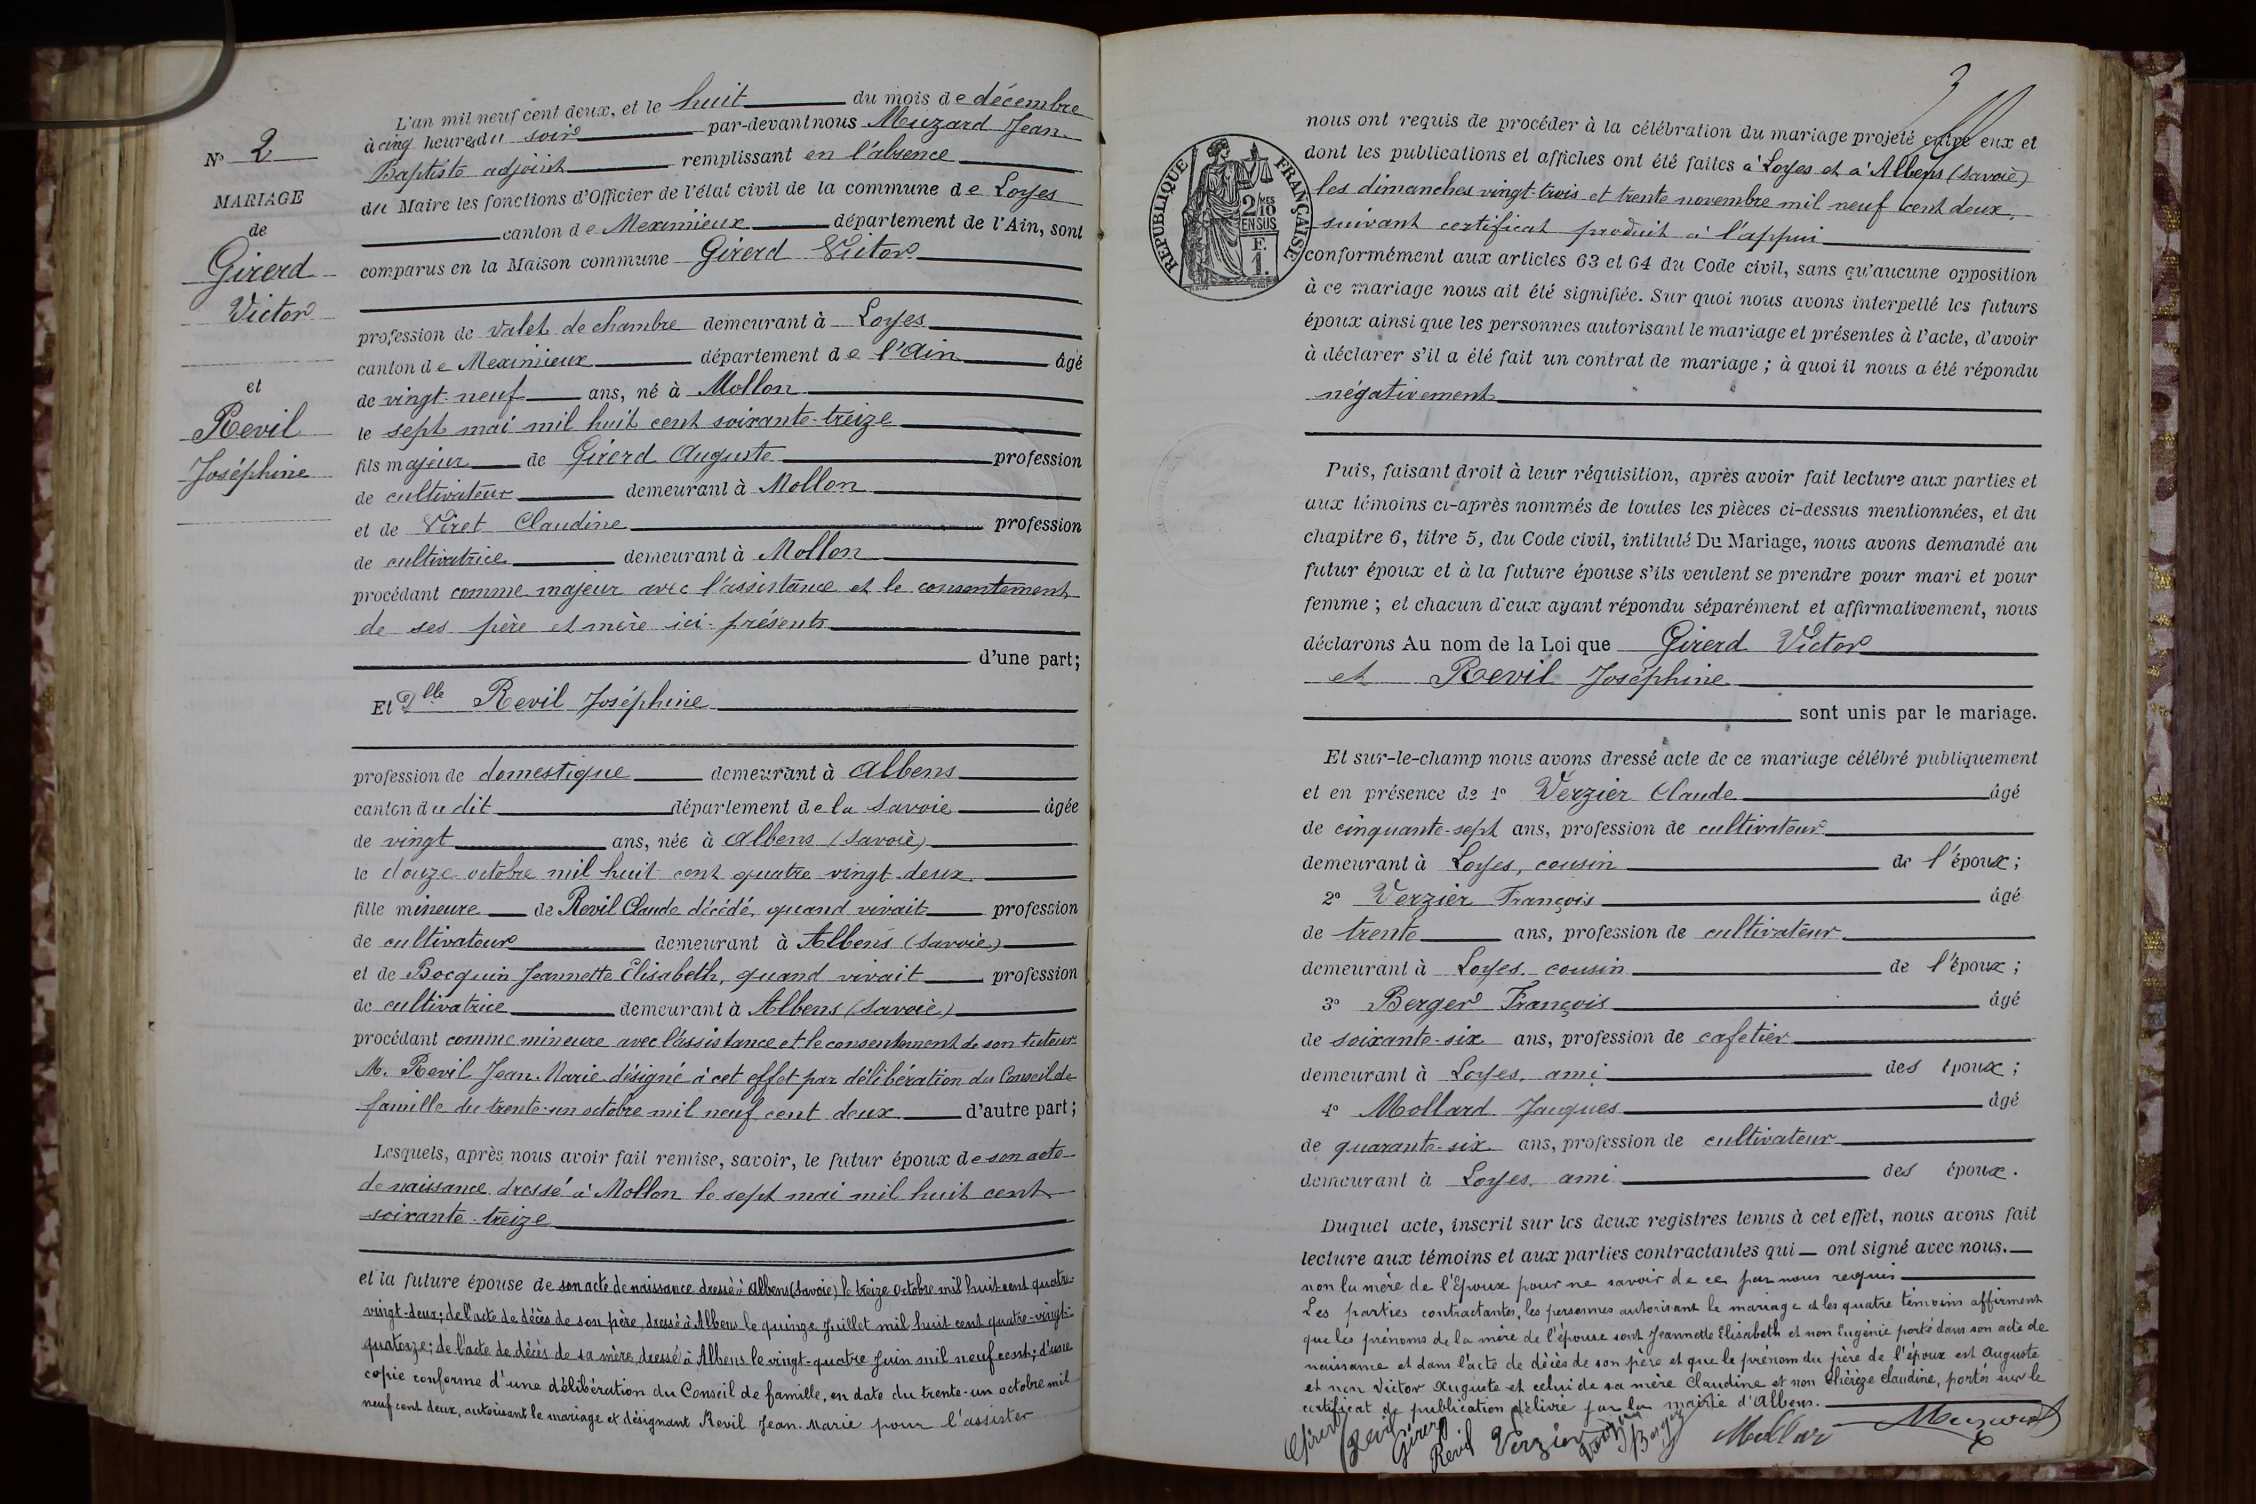 N° 2
MARIAGE
de
Girerd
Victor
et
Revil
Joséphine
L'an mil neuf cent deux, et le huit du mois de décembre
à cinq heures du soir par-devant nous Muzard Jean-
Baptiste adjoint remplissant en l'absence
du Maire les fonctions d'Officier de l'état civil de la commune de Loyes
canton de Meximieux département de l'Ain, sont
comparus en la Maison commune Girerd Victor
profession de valet de chambre demeurant à Loyes
canton de Meximieux département de l'Ain âgé
de vingt-neuf ans, né à Mollon
le sept mai mil huit cent soixante-treize
fils majeur de Girerd Auguste profession
de cultivateur demeurant à Mollon
et de Viret Claudine profession
de cultivatrice demeurant à Mollon
procédant comme majeur avec l'assistance et le consentement
de ses père et mère ici présents
d'une part;
Et Dlle Revil Joséphine
profession de domestique demeurant à Albens
canton du dit département de la Savoie âgée
de vingt ans, née à Albens (Savoie)
le douze octobre mil huit cent quatre vingt-deux
fille mineure de Revil Claude décédé, quand vivait profession
de cultivateur demeurant à Albens (Savoie)
et de Bocquin Jeannette Elisabeth, quand vivait profession
de cultivatrice demeurant à Albens (Savoie)
procédant comme mineure avec l'assistance et le consentement de son tuteur
M. Revil Jean-Marie désigné à cet effet par délibération du Conseil de
famille du trente-un octobre mil neuf cent deux d'autre part;
Lesquels, après nous avoir fait remise, savoir, le futur époux de son acte
de naissance dressé à Mollon le sept mai mil huit cent
soixante-treize
et la future épouse de son acte de naissance dressé à Albens (Savoie) le treize octobre mil huit cent quatre-
vingt-deux; de l'acte de décès de son père, dressé à Albens le quinze Juillet mil huit cent quatre-vingt-
quatorze; de l'acte de décès de sa mère, dressé à Albens le vingt-quatre Juin mil neuf cent; d'une
copie conforme d'une délibération du Conseil de famille, en date du trente-un octobre mil
neuf cent deux, autorisant le mariage et désignant Revil Jean-Marie pour l'assister
3
RÉPUBLIQUE FRANÇAISE
2/10MES
EN SUS
F.
1.
nous ont requis de procéder à la célébration du mariage projeté entre eux et
dont les publications et affiches ont été faites à Loyes et à Albens (Savoie)
les dimanches vingt-trois et trente novembre mil neuf cent deux,
suivant certificat produit à l'appui
conformément aux articles 63 et 64 du Code civil, sans qu'aucune opposition
à ce mariage nous ait été signifiée. Sur quoi nous avons interpellé les futurs
époux ainsi que les personnes autorisant le mariage et présentes à l'acte, d'avoir
à déclarer s'il a été fait un contrat de mariage; à quoi il nous a été répondu
négativement
Puis, faisant droit à leur réquisition, après avoir fait lecture aux parties et
aux témoins ci-après nommés de toutes les pièces ci-dessus mentionnées, et du
chapitre 6, titre 5, du Code civil, intitulé Du Mariage, nous avons demandé au
futur époux et à la future épouse s'ils veulent se prendre pour mari et pour
femme; et chacun d'eux ayant répondu séparément et affirmativement, nous
déclarons Au nom de la Loi que Girerd Victor
et Revil Joséphine
sont unis par le mariage.
Et sur-le-champ nous avons dressé acte de ce mariage célébré publiquement
et en présence de 1° Verzier Claude âgé
de cinquante-sept ans, profession de cultivateur
demeurant à Loyes, cousin de l'époux;
2° Verzier François âgé
de trente ans, profession de cultivateur
demeurant à Loyes, cousin de l'époux;
3° Berger François âgé
de soixante-six ans, profession de cafetier
demeurant à Loyes, ami des époux;
4° Mollard Jacques âgé
de quarante-six ans, profession de cultivateur
demeurant à Loyes, ami des époux.
Duquel acte, inscrit sur les deux registres tenus à cet effet, nous avons fait
lecture aux témoins et aux parties contractantes qui ont signé avec nous.
non la mère de l'époux pour ne savoir de ce par nous requis
Les parties contractantes, les personnes autorisant le mariage et les quatre témoins affirment
que les prénoms de la mère de l'épouse sont Jeannette Elisabeth et non Eugénie porté dans son acte de
naissance et dans l'acte de décès de son père et que le prénom du père de l'époux est Auguste
et non Victor Auguste et celui de sa mère Claudine et non Thérèze Claudine, portés sur le
certificat de publication délivré par la mairie d'Albens.
Girerd Revil Girerd Revil Verzier Verzier Berger Mollard Muzard